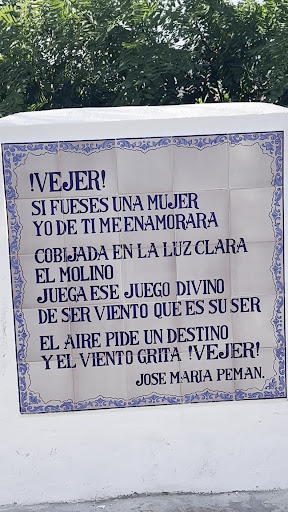 !VEJER!
SI FUESES UNA MUJER
YO DE TI ME ENAMORARA
COBIJADA EN LA LUZ CLARA
EL MOLINO
JUEGA ESE JUEGO DIVINO
DE SER VIENTO QUE ES SU SER
EL AIRE PIDE UN DESTINO
Y EL VIENTO GRITA !VEJER!
JOSE MARIA PEMAN.